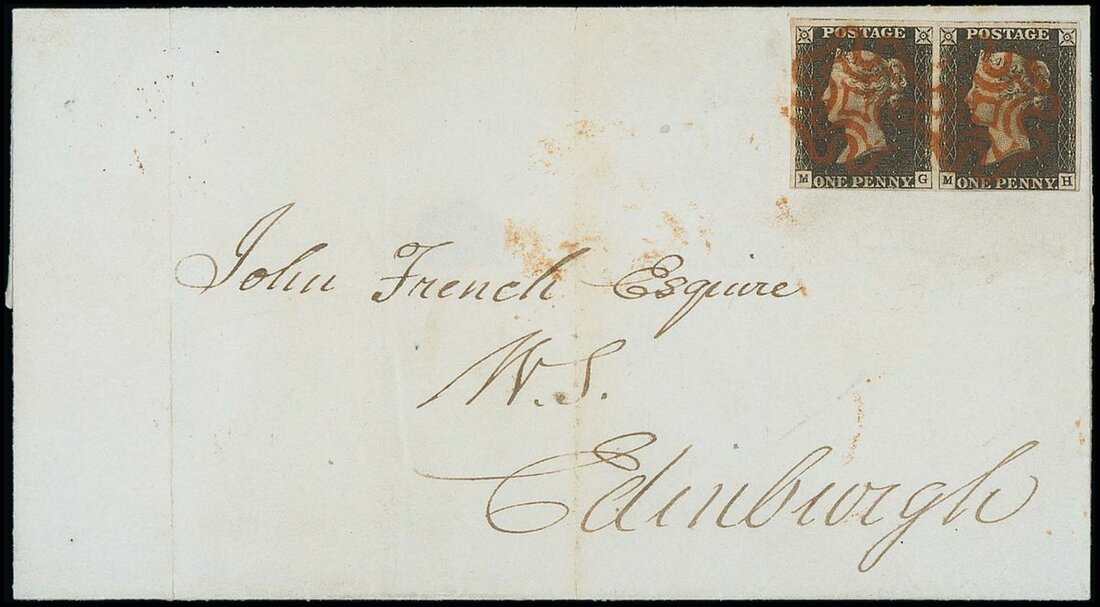 POSTAGE POSTAGE
M ONE PENNY G M ONE PENNY H
John French Esquire
W.S.
Edinburgh